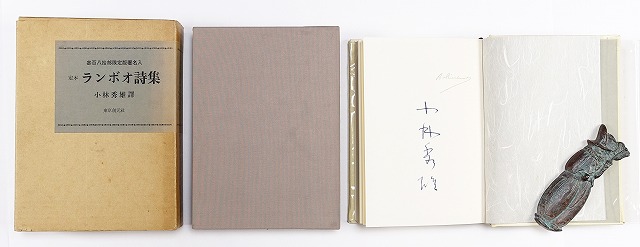 壱百八拾部限定版署名入
定本 ランボオ詩集
小林秀雄譯
東京創元社
小林秀雄